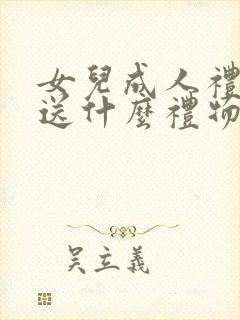 女兒成人禮
送什麼禮物
吴立義